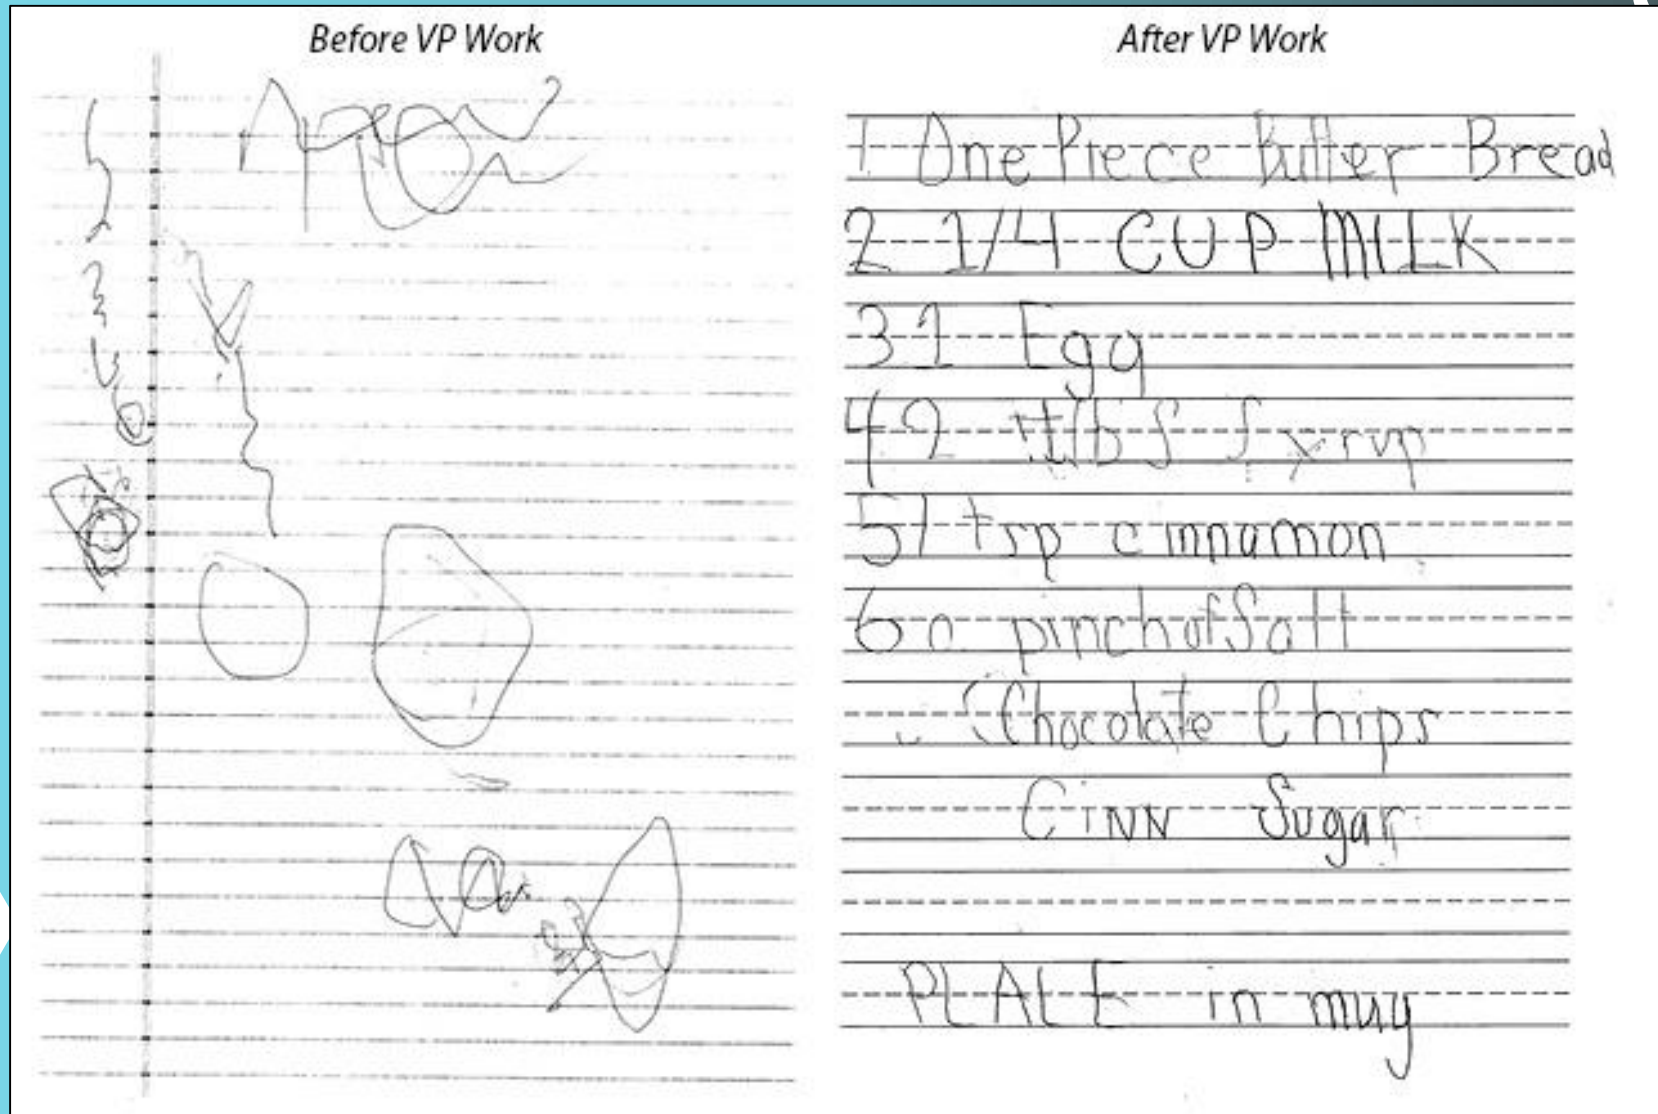 Before VP Work
After VP Work
1 One Piece Butter Bread
2 1/4 CUP MILK
3 1 Egg
4 2 tlbs Syrup
5 1 tsp cinnamon
6 a pinch of Salt
Chocolate Chips
CiNN Sugar
PLACE in mug